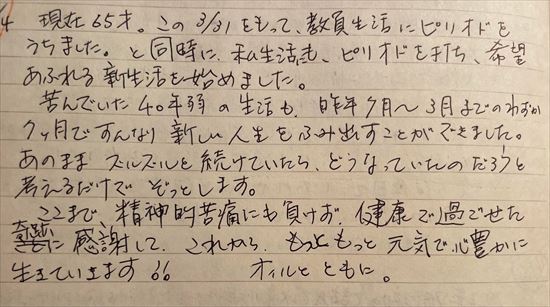 4 現在65才。この3/31をもって、教員生活にピリオドを
うちました。と同時に、私生活も、ピリオドを打ち、希望
あふれる新生活を始めました。
苦んでいた40年弱の生活も、昨年9月〜3月までのわずか
7ヶ月ですんなり新しい人生をふみ出すことができました。
あのままズルズルと続けていたら、どうなっていたのだろうと
考えるだけでぞっとします。
ここまで、精神的苦痛にも負けず、健康で過ごせた
奇跡に感謝して、これから、もっともっと元気で心豊かに
生きていきます!! オイルとともに。